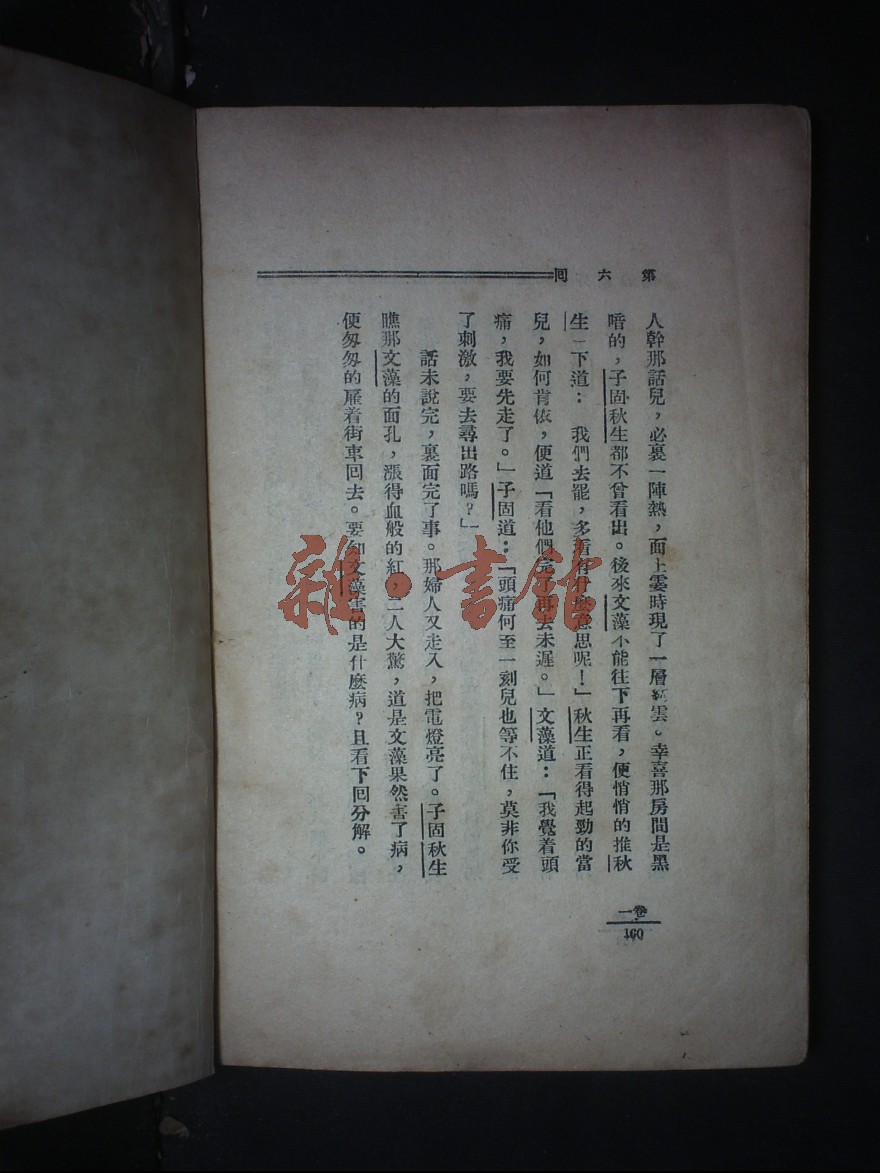 第六回
人幹那話兒，必裏一陣熱，面上霎時現了一層紅雲。幸喜那房間是黑
暗的，子固秋生都不曾看出。後來文藻不能往下再看，便悄悄的推秋
生一下道：我們去罷，多看有什麼意思呢！」秋生正看得起勁的當
兒，如何肯依，便道「看他們完了再去未遲。」文藻道：「我覺着頭
痛，我要先走了。」子固道：「頭痛何至一刻兒也等不住，莫非你受
了刺激，要去尋出路嗎？」
話未說完，裏面完了事。那婦人又走入，把電燈亮了。子固秋生
瞧那文藻的面孔，漲得血般的紅，二人大驚，道是文藻果然害了病，
便匆匆的雇着街車回去。要知文藻害的是什麼病？且看下回分解。
卷一
160
雜·書館